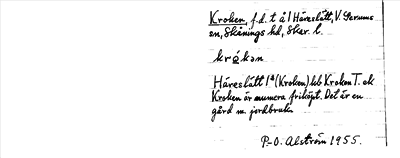 Kroken, f.d. t å 1 Häreslätt, V. Serums
sn, Skånings hd, Skar. l.
krókən
Häreslätt 1ª (Kroken) kb Kroken T. ek
Kroken är numera friköpt. Det är en
gård m. jordbruk.
P-O. Alström 1955.